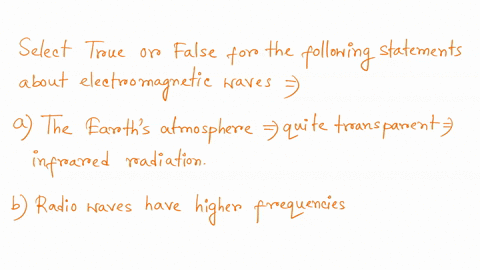 Select True or False for the following statements
about electromagnetic waves ⇒
a) The Earth's atmosphere ⇒ quite transparent ⇒
infrared radiation.
b) Radio waves have higher frequencies